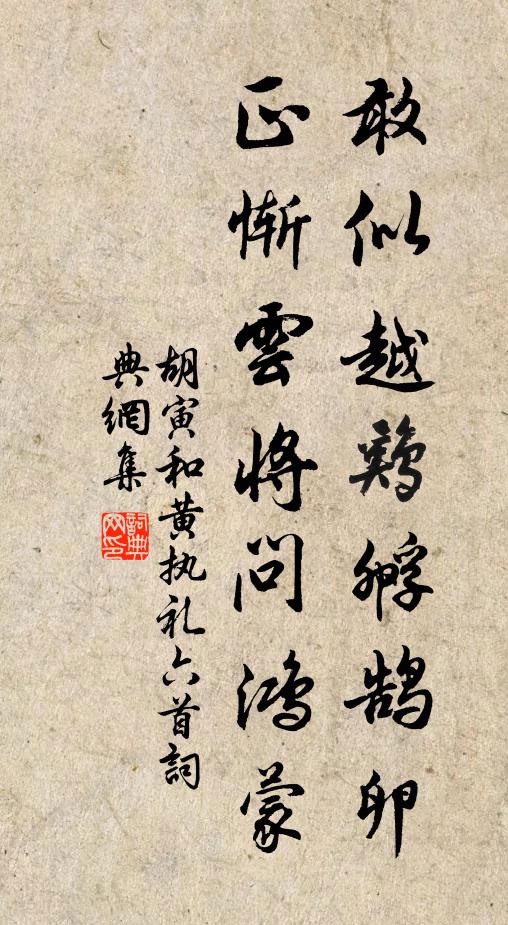 敢似越鷄孵鹄卵
正惭雲将问鴻蒙
胡寅和黄执礼六首詞
典網集
詞典网印